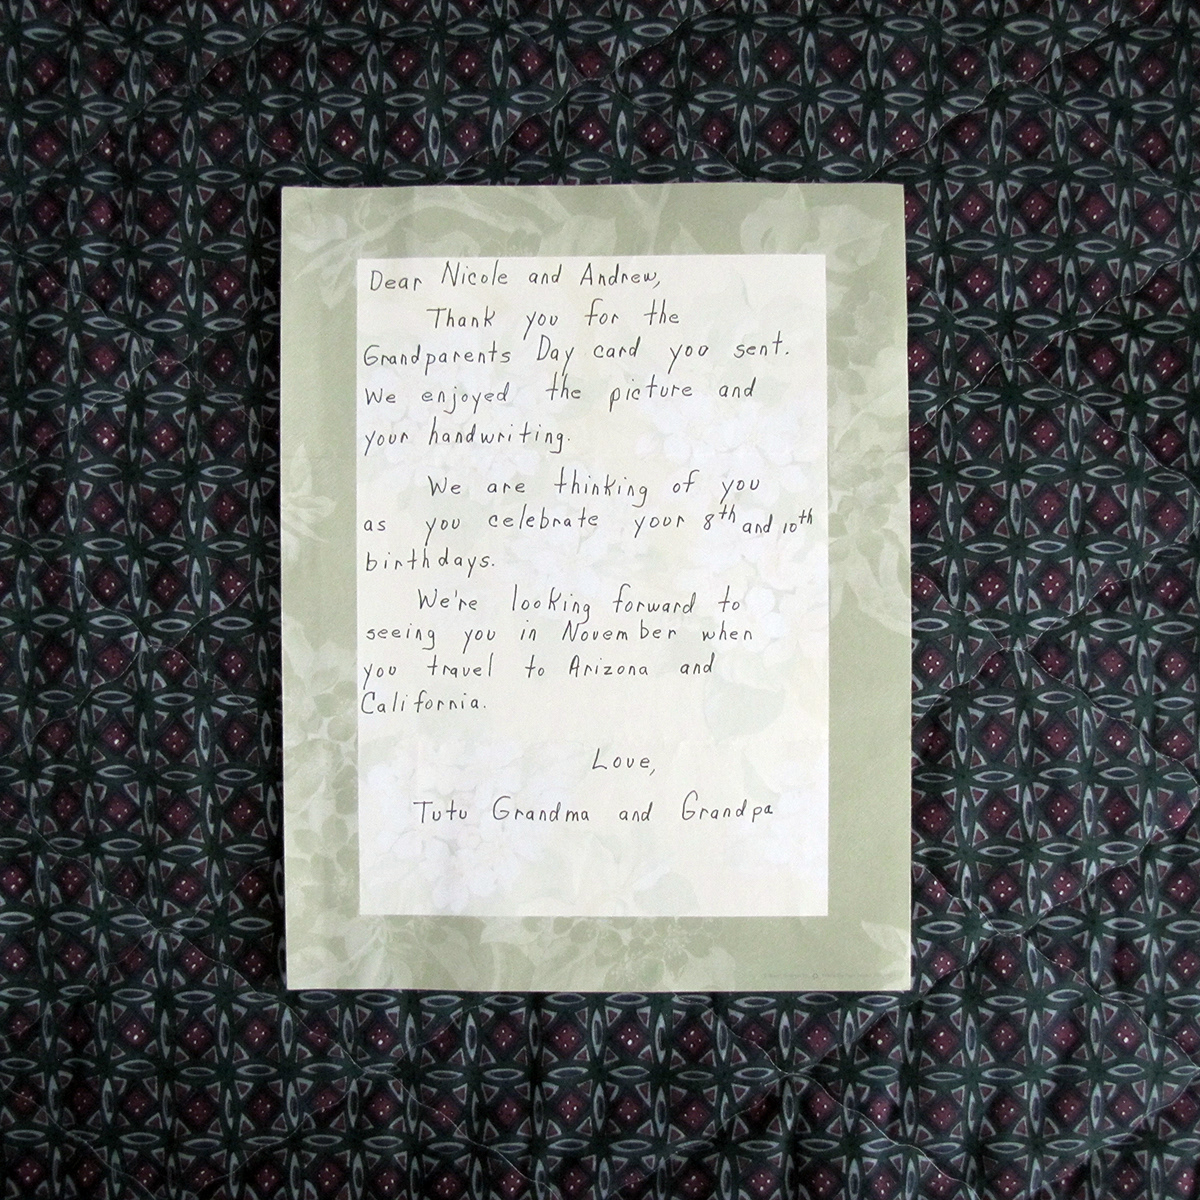 Dear Nicole and Andrew,
Thank you for the
Grandparents Day card you sent.
We enjoyed the picture and
your handwriting.
We are thinking of you
as you celebrate your 8th and 10th
birthdays.
We're looking forward to
seeing you in November when
you travel to Arizona and
California.
Love,
Tutu Grandma and Grandpa